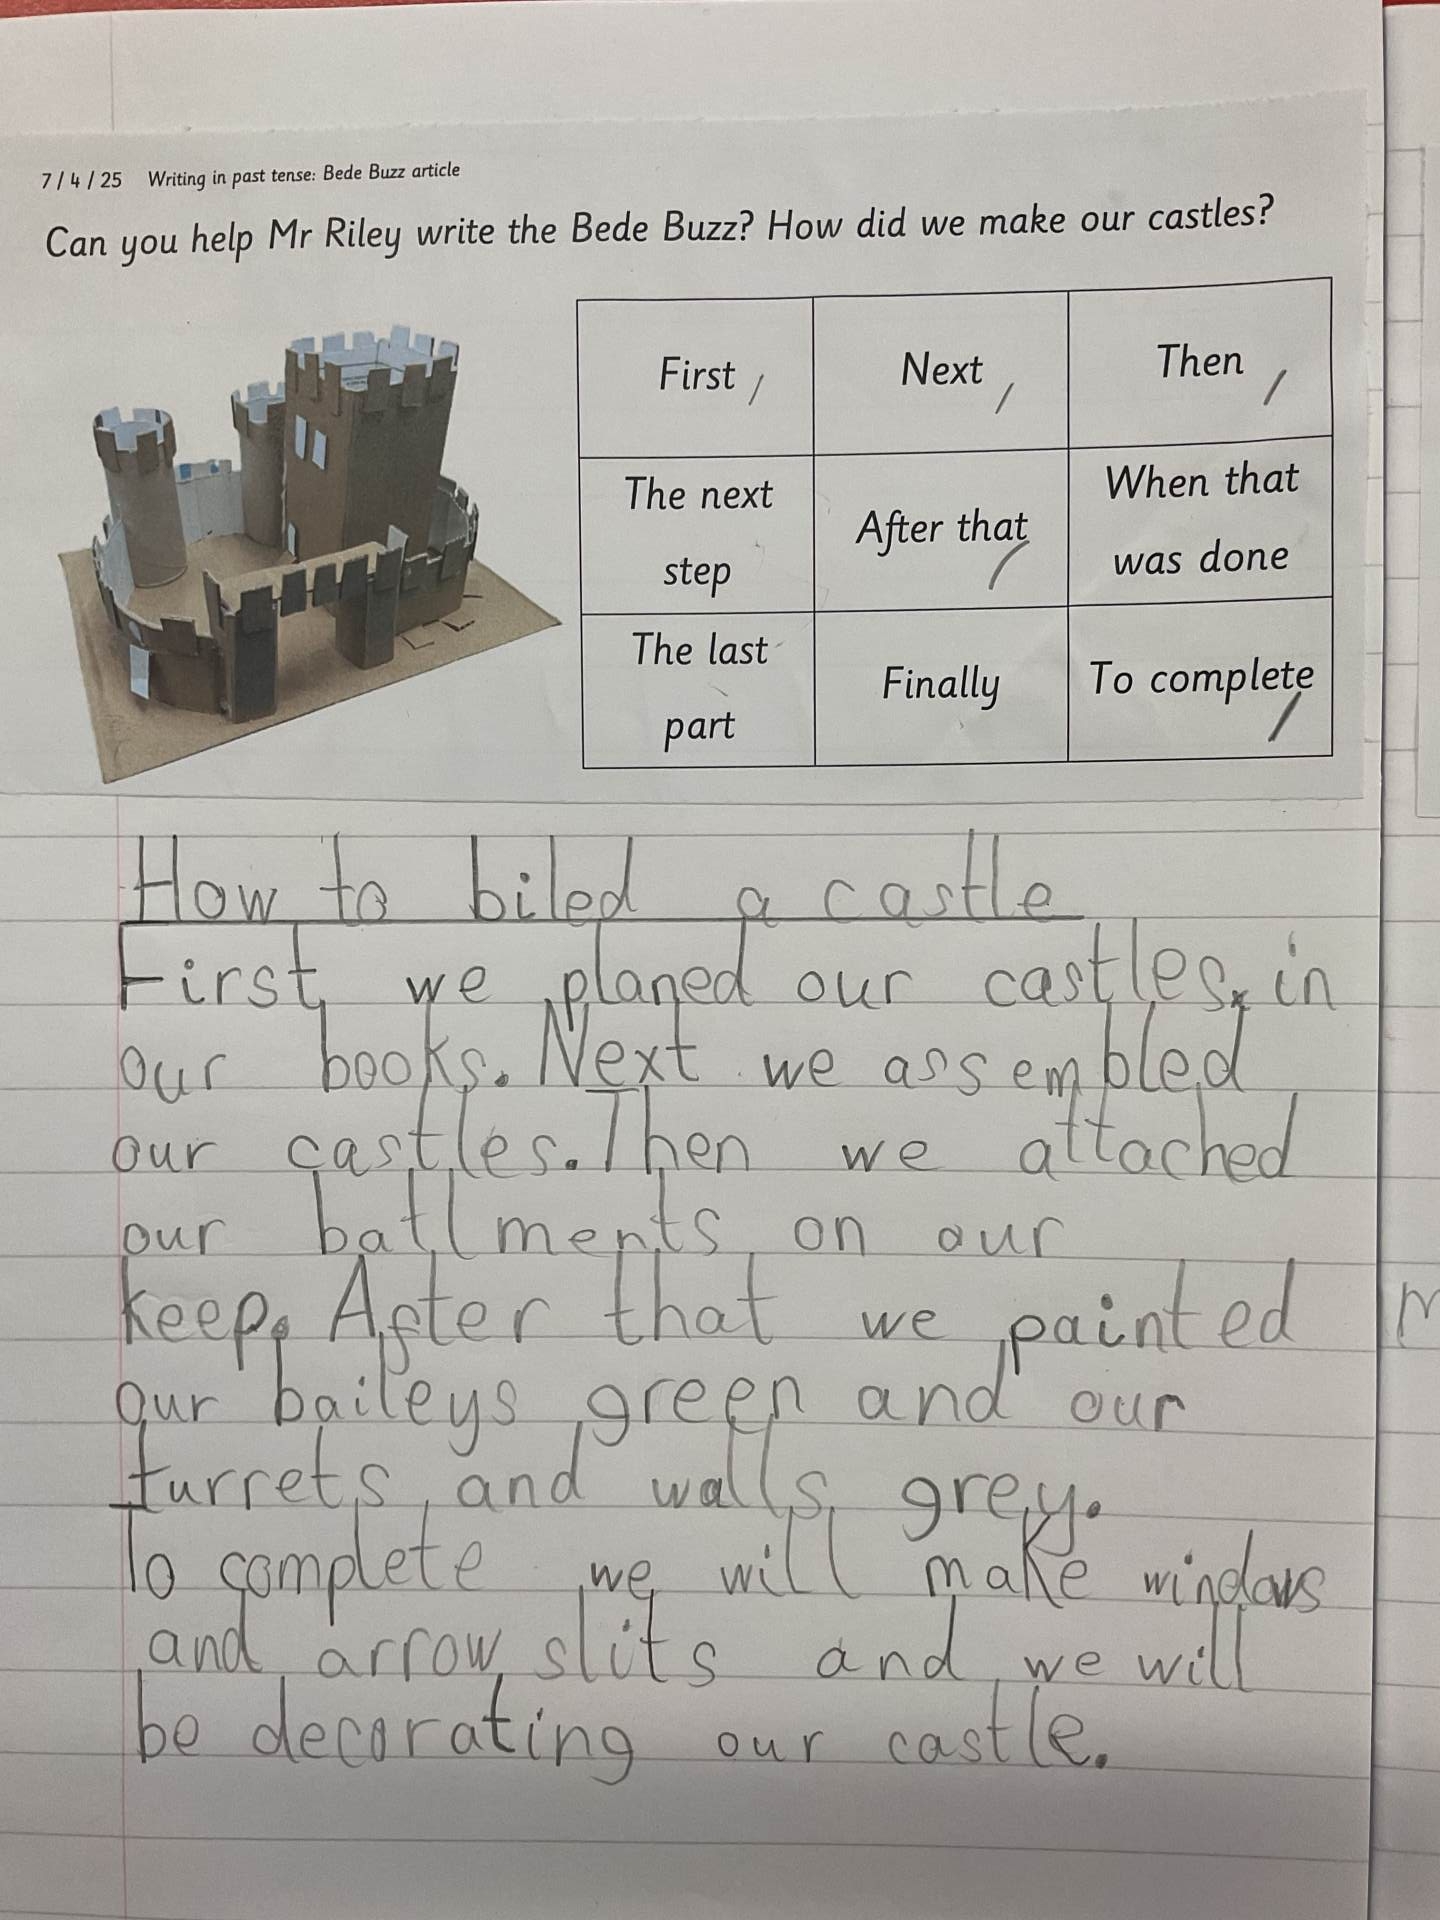 7 / 4 / 25 Writing in past tense: Bede Buzz article
Can you help Mr Riley write the Bede Buzz? How did we make our castles?
First
Next
Then
The next
step
After that
When that
was done
The last
part
Finally
To complete
How to biled a castle
First, we planed our castles in
our books. Next we assembled
our castles. Then we attached
our batlments on our
keep. After that we painted
our baileys green and our
turrets and walls grey.
To complete we will make windows
and arrow slits and we will
be decorating our castle.